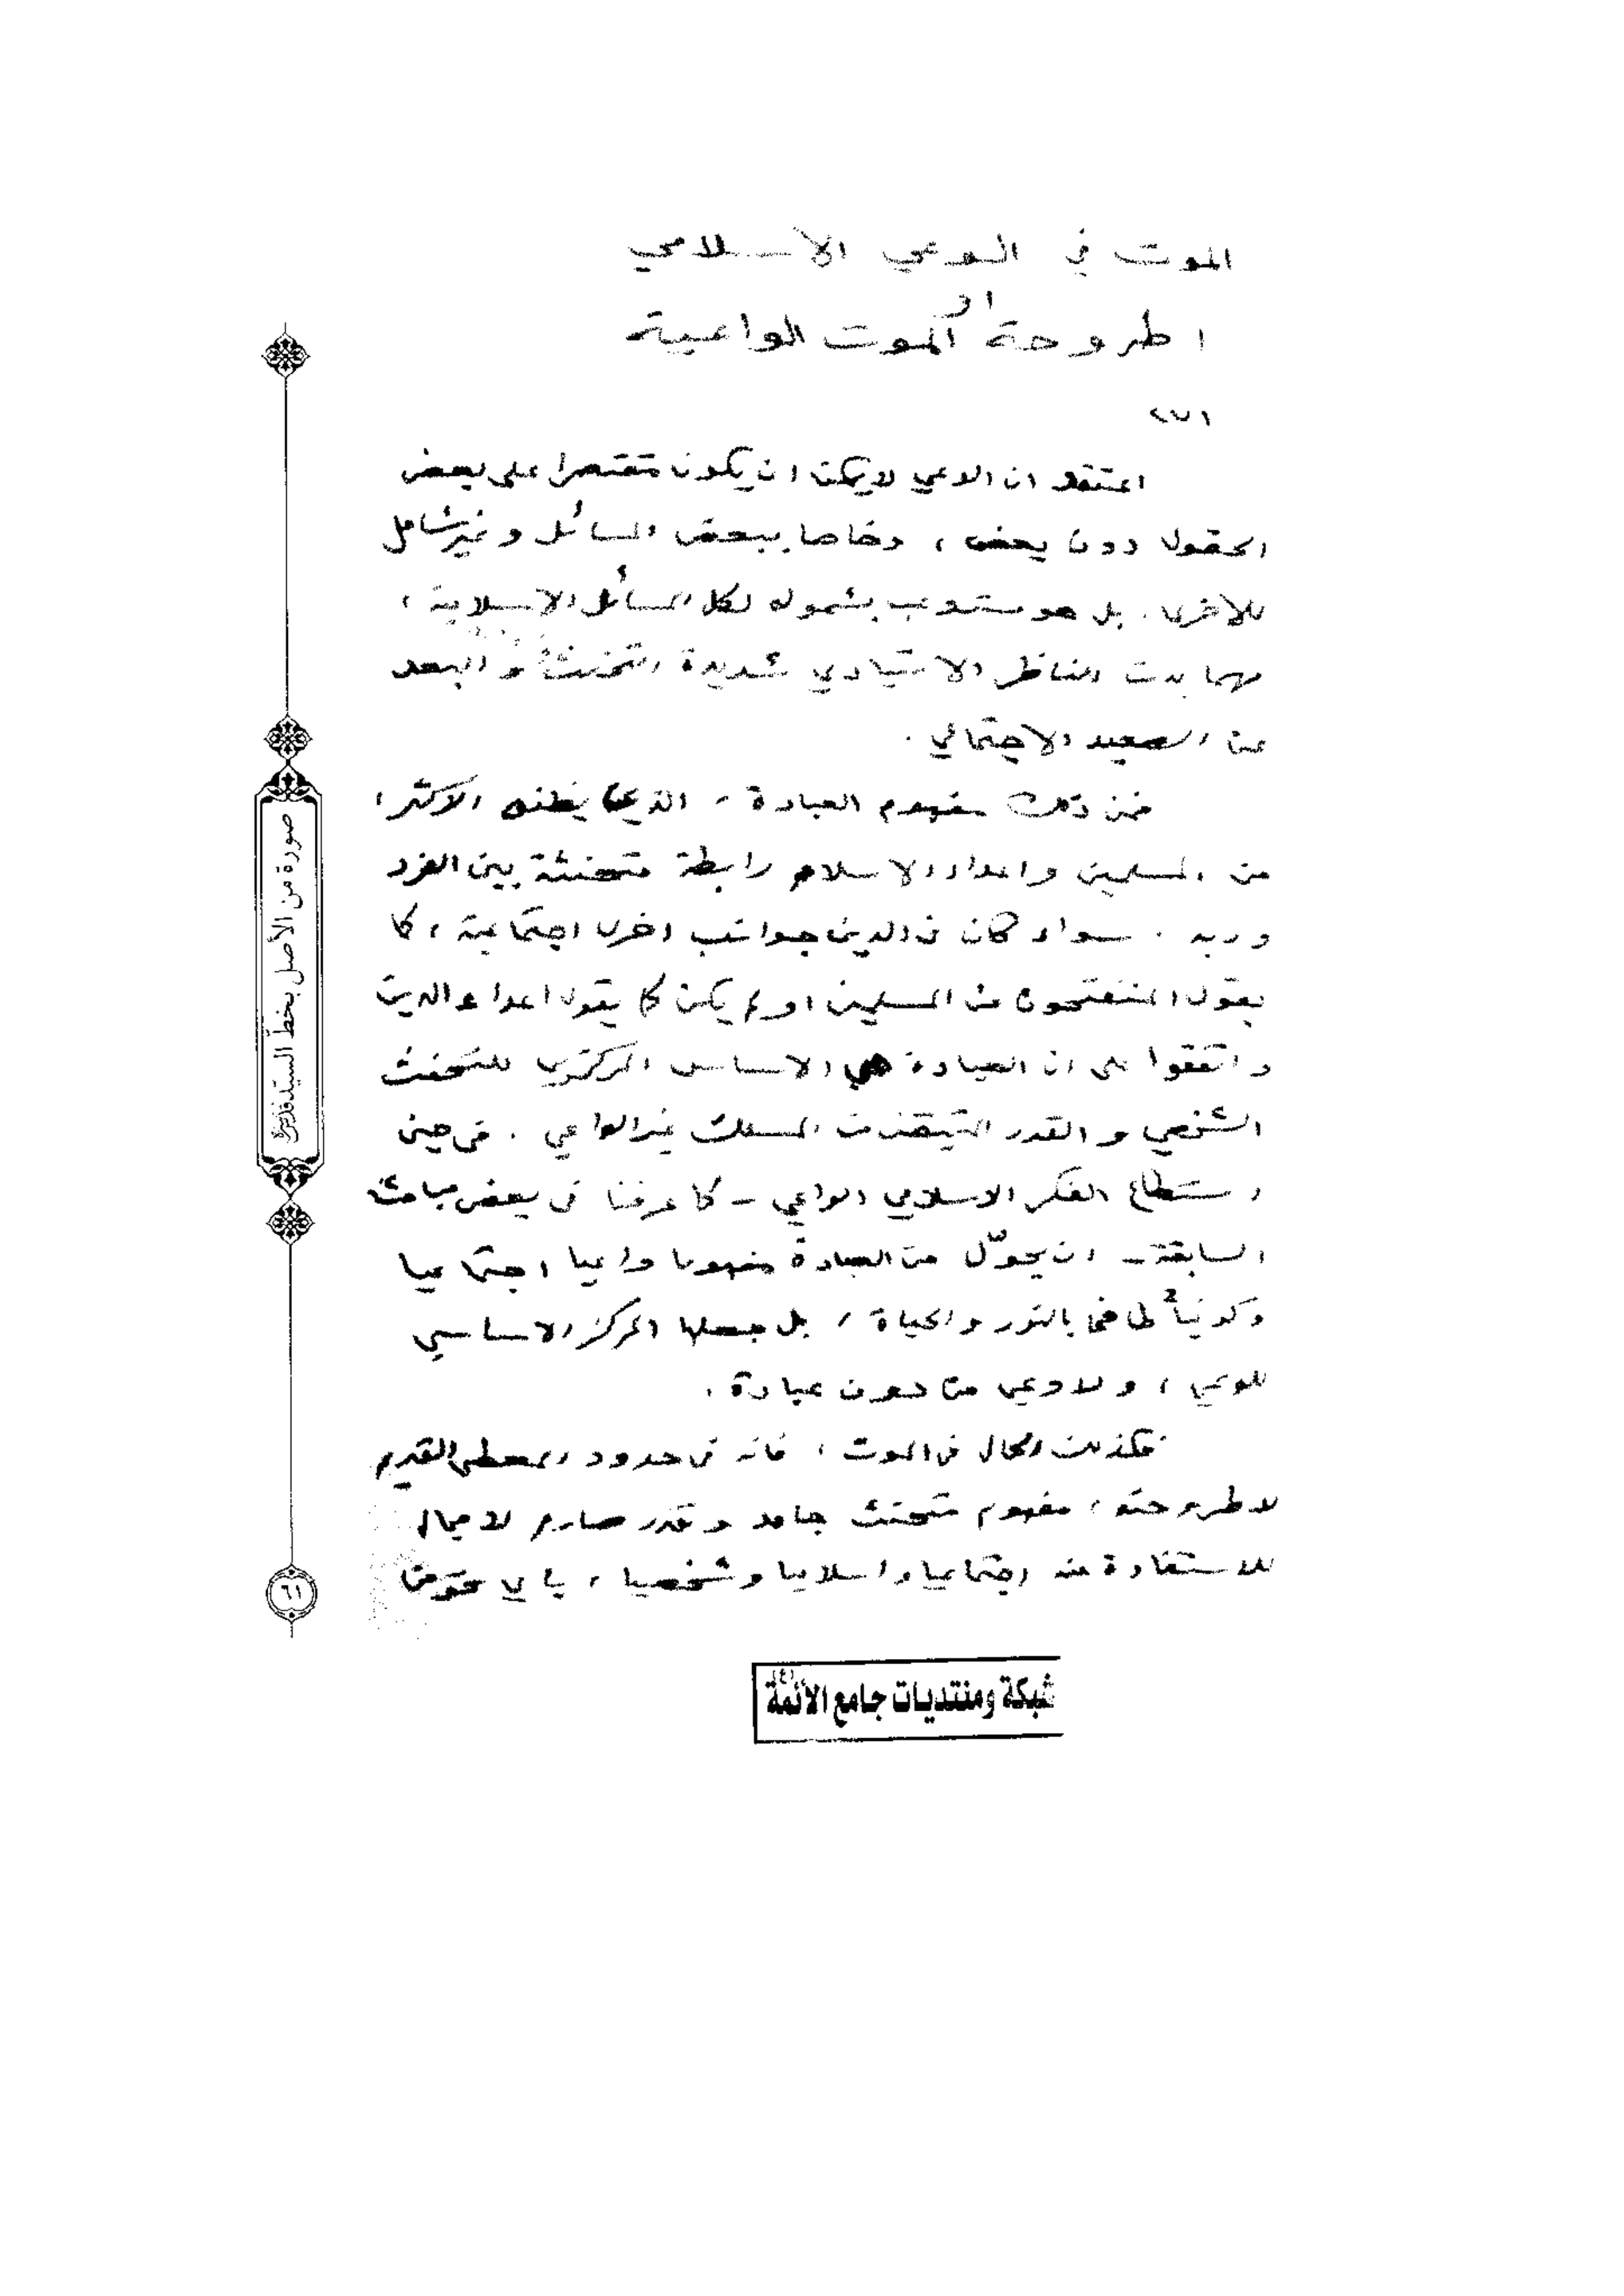 الموت في الوعي الاسلامي
او
اطروحة الموت الواعية
اعتقد ان الوعي لا يمكن ان يكون مقتصرا على بعض
الحقول دون بعض ، وخاصا ببعض المسائل وغير شامل
للأخرى . بل هو مستوعب بشموله لكل المسائل الاسلامية ،
مهما بدت للناظر الاعتيادي شديدة التحنث والبعد
عن الصعيد الاجتماعي .
فمن ذلك مفهوم العبادة ، الذي يظنه الاكثر
من المسلمين واعداء الاسلام رابطة متحنثة بين الفرد
وربه . سواء كان في الدين جوانب اخرى اجتماعية ، كما
يقول المتفتحون من المسلمين او لم يكن كما يقول اعداء الدين
واتفقوا على ان العبادة هي الاساس المركزي للتحنث
الشخصي والقدر المتيقن من المسلك غير الواعي . في حين
استطاع الفكر الاسلامي الواعي - كما عرفنا في بعض مباحثه
السابقة - ان يحوّل من العبادة مفهوما واعيا اجتماعيا
وكونياً طافحا بالنور والحياة ، بل جعلها المركز الاساسي
للوعي ، ولا وعي من دون عبادة .
فكذلك الحال في الموت ، فانه في حدود المعطى القديم
لاطروحته ، مفهوم متحنث جامد وقدر صارم لا مجال
للاستفادة منه اجتماعيا واسلاميا وشخصيا ، باي نحو من
صورة من الأصل بخطّ السيّد
٦١
شبكة ومنتديات جامع الأئمة